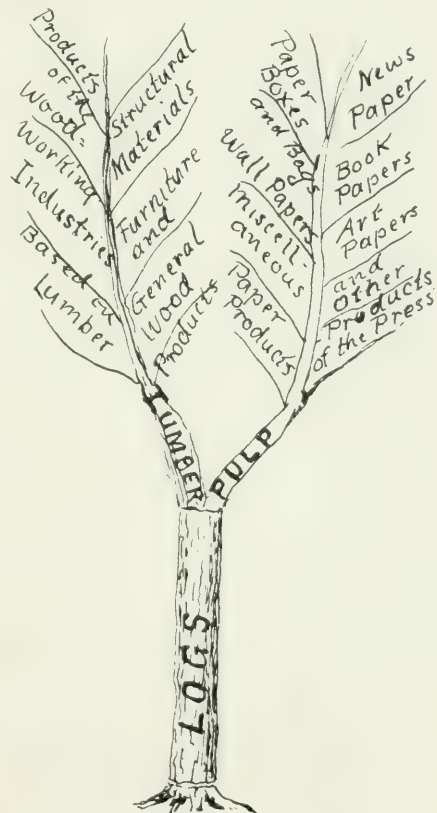 Products
of the
Wood-
Working
Industries
Based on
Lumber
Structural
Materials
Furniture
and
General
Wood
Products
Paper
Boxes
and Bags
Wall Papers
Miscell-
aneous
Paper
Products
News
Paper
Book
Papers
Art
Papers
and
Other
Products
of the Press
LUMBER
PULP
LOGS